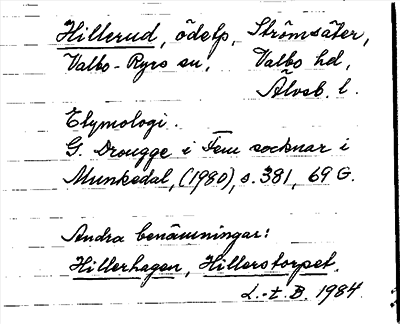 Hillerud, ödelp, Strömsäter,
Valbo-Ryrs sn, Valbo hd,
Älvsb. l.
Etymologi.
G. Drougge i Fem socknar i
Munkedal, (1980), s. 381, 69 G.
Andra benämningar:
Hillerhagen, Hillerstorpet.
L.-t. B. 1984